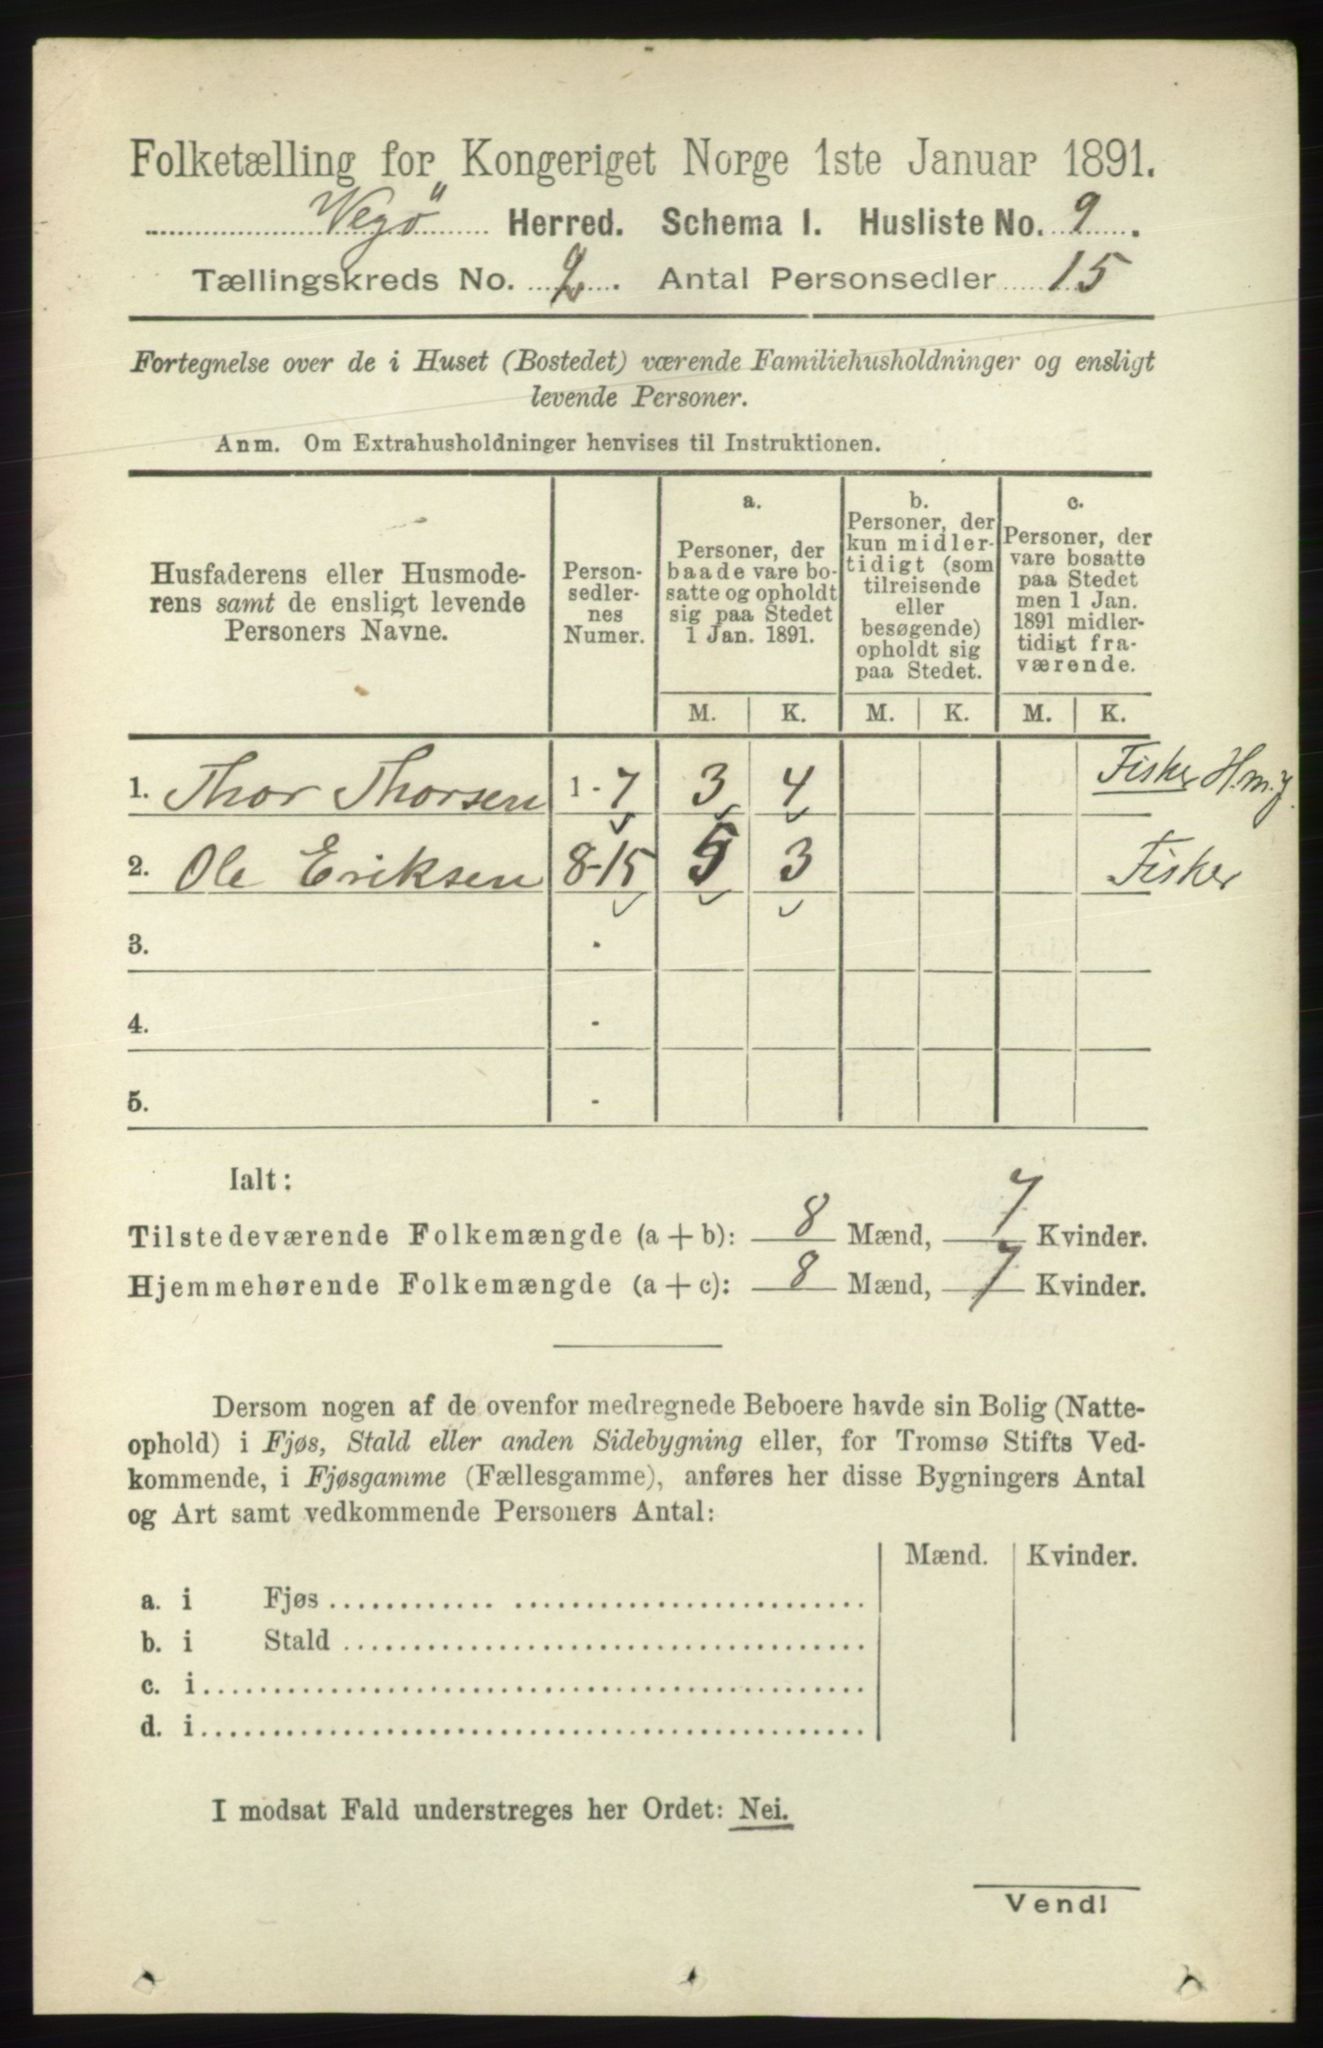 Folketælling for Kongeriget Norge 1ste Januar 1891.
Vegö Herred. Schema I. Husliste No. 9.
Tællingskreds No. 2. Antal Personsedler 15
Fortegnelse over de i Huset (Bostedet) værende Familiehusholdninger og ensligt
levende Personer.
Anm. Om Extrahusholdninger henvises til Instruktionen.
Husfaderens eller Husmode-
rens samt de ensligt levende
Personers Navne.
Person-
sedler-
nes
Numer.
a.
Personer, der
baade vare bo-
satte og opholdt
sig paa Stedet
1 Jan. 1891.
b.
Personer, der
kun midler-
tidigt (som
tilreisende
eller
besøgende)
opholdt sig
paa Stedet.
c.
Personer, der
vare bosatte
paa Stedet
men 1 Jan.
1891 midler-
tidigt fra-
værende.
M. K. M. K. M. K.
1. Thor Thorsen 1-7 3 4 Fisker H.m.j.
2. Ole Eriksen 8-15 5 3 Fisker
3. -
4. -
5. -
Ialt:
Tilstedeværende Folkemængde (a + b): 8 Mænd, 7 Kvinder.
Hjemmehørende Folkemængde (a + c): 8 Mænd, 7 Kvinder.
Dersom nogen af de ovenfor medregnede Beboere havde sin Bolig (Natte-
ophold) i Fjøs, Stald eller anden Sidebygning eller, for Tromsø Stifts Ved-
kommende, i Fjøsgamme (Fællesgamme), anføres her disse Bygningers Antal
og Art samt vedkommende Personers Antal:
Mænd. Kvinder.
a. i Fjøs
b. i Stald
c. i
d. i
I modsat Fald understreges her Ordet: Nei.
Vend!